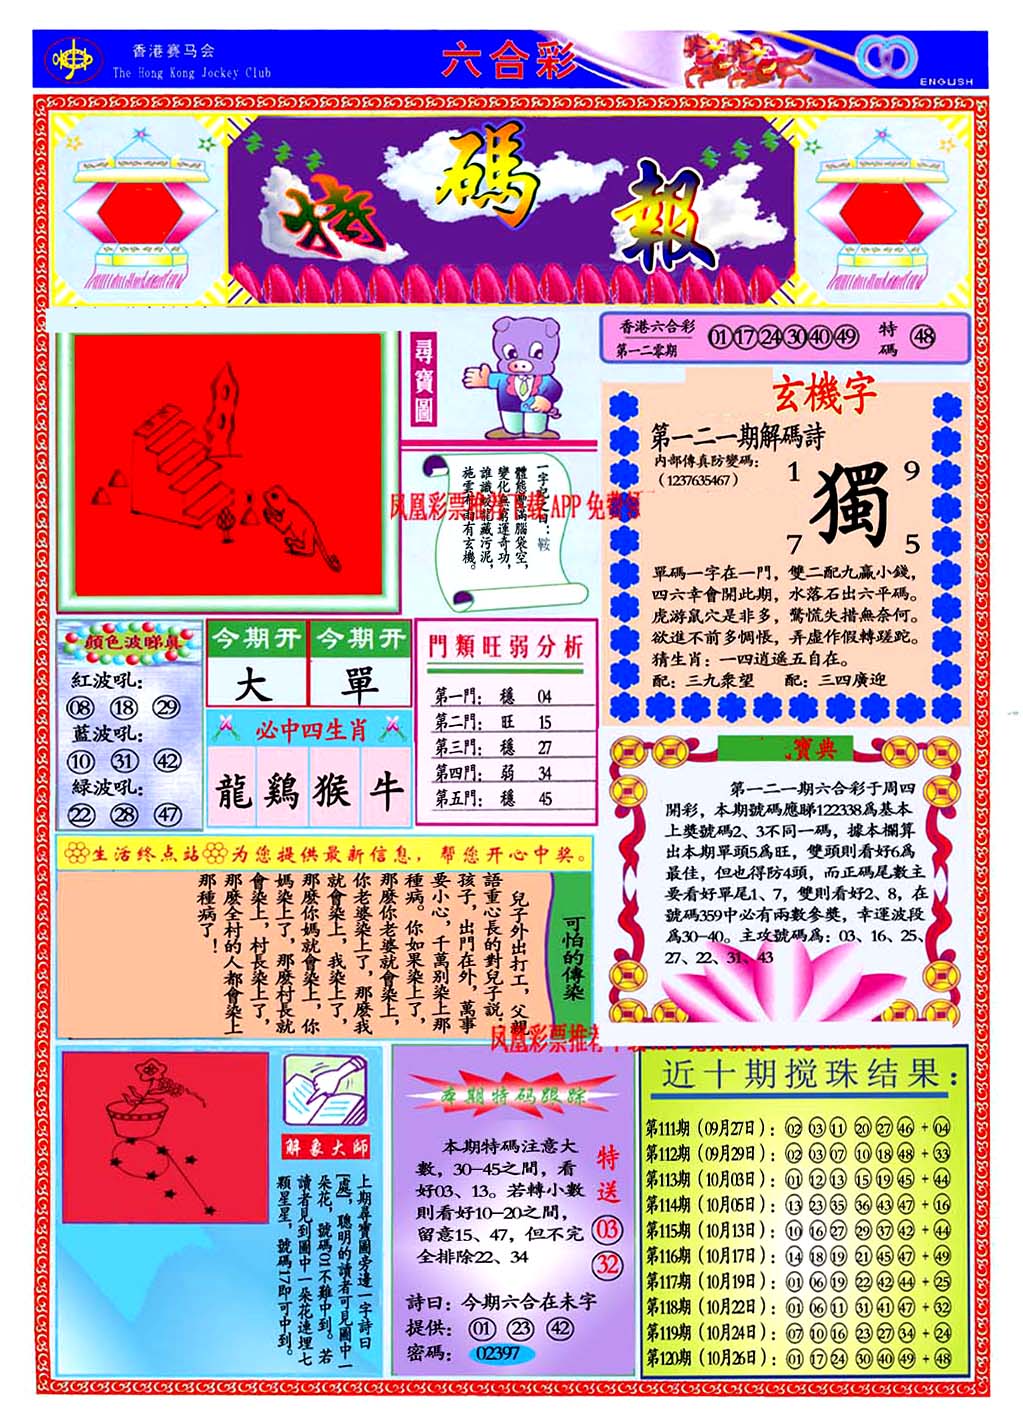 香港赛马会
The Hong Kong Jockey Club
六合彩
ENGLISH
特碼報
尋寶圖
香港六合彩
第一二零期
01 17 24 30 40 49
特碼 48
一字記之曰：鞍
體態豐滿腦袋空，
變化無窮運奇功，
誰識蛟龍藏污泥，
施雲布雨有玄機。
玄機字
第一二一期解碼詩
内部傳真防變碼：
（1237635467）
1 9
獨
7 5
單碼一字在一門，雙二配九贏小錢，
四六幸會開此期，水落石出六平碼。
虎游鼠穴是非多，驚慌失措無奈何。
欲進不前多惆悵，弄虛作假轉蹉跎。
猜生肖：一四逍遥五自在。
配：三九衆望 配：三四廣迎
顔色波睇真
紅波吼：
08 18 29
藍波吼：
10 31 42
緑波吼：
22 28 47
今期开 今期开
大 單
必中四生肖
龍 鷄 猴 牛
門類旺弱分析
第一門： 穩 04
第二門： 旺 15
第三門： 穩 27
第四門： 弱 34
第五門： 穩 45
寶典
第一二一期六合彩于周四
開彩，本期號碼應睇122338爲基本
上獎號碼2、3不同一碼，據本欄算
出本期單頭5爲旺，雙頭則看好6爲
最佳，但也得防4頭，而正碼尾數主
要看好單尾1、7，雙則看好2、8，在
號碼359中必有兩數参獎，幸運波段
爲30-40。主攻號碼爲：03、16、25、
27、22、31、43
生活终点站 为您提供最新信息，帮您开心中奖。
可怕的傳染
兒子外出打工，父親
語重心長的對兒子説：
孩子，出門在外，萬事
要小心，千萬别染上那
種病。你如果染上了，
那麽你老婆就會染上，
你老婆染上了，那麽我
就會染上，我染上了，
那麽你媽就會染上，你
媽染上了，那麽村長就
會染上，村長染上了，
那麽全村的人都會染上
那種病了！
解象大師
上期尋寶圖旁邊一字詩曰
[處]，聰明的讀者可見圖中一
朵花，號碼01不難中到。若
讀者見到圖中一朵花連埋七
顆星星，號碼17即可中到。
本期特码跟踪
本期特碼注意大
數，30-45之間，看
好03、13。若轉小數
則看好10-20之間，
留意15、47，但不完
全排除22、34
特送
03
32
詩曰：今期六合在未字
提供： 01 23 42
密碼： 02397
近十期搅珠结果：
第111期（09月27日）：02 03 11 20 27 46 + 04
第112期（09月29日）：02 03 07 10 18 48 + 33
第113期（10月03日）：01 12 13 15 19 45 + 44
第114期（10月05日）：13 23 35 36 43 47 + 16
第115期（10月13日）：10 16 27 29 37 42 + 44
第116期（10月17日）：14 18 19 21 45 47 + 49
第117期（10月19日）：01 06 19 22 42 44 + 25
第118期（10月22日）：01 06 11 31 41 47 + 32
第119期（10月24日）：07 10 16 23 27 34 + 24
第120期（10月26日）：01 17 24 30 40 49 + 48
凤凰彩票推荐下载APP 免费
凤凰彩票推荐